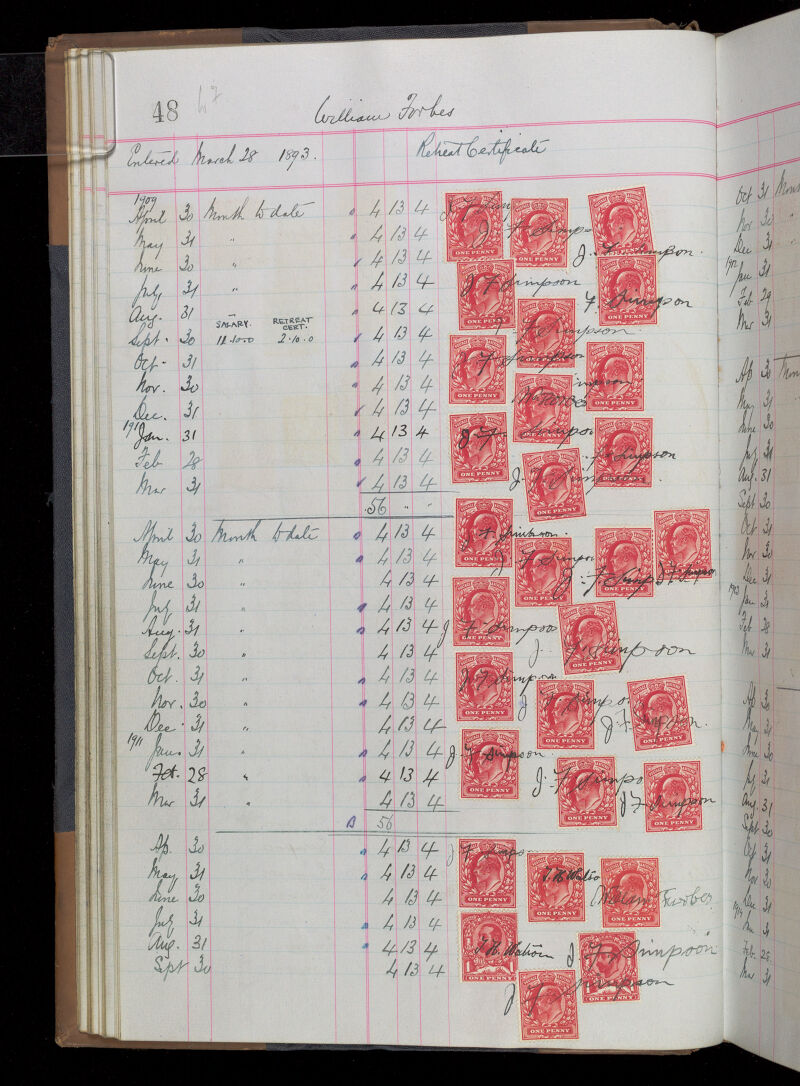 48
William Forbes
Entered March 28 1893. Retreat Certificate
1909
April 30 Month to date " 4 13 4
May 31 " " 4 13 4
June 30 " 4 13 4
July 31 " " 4 13 4
Aug. 31 " " 4 13 4
SALARY. RETREAT CERT.
Sept. 30 2.10.0 4 13 4
Oct. 31 " 4 13 4
Nov. 30 " 4 13 4
Dec. 31 4 13 4
1910
Jan. 31 " 4 13 4
Feb 28 4 13 4
Mar 31 4 13 4
56 " "
April 30 Month to date 4 13 4
May 31 " 4 13 4
June 30 " 4 13 4
July 31 " 4 13 4
Aug. 31 " 4 13 4
Sept. 30 " 4 13 4
Oct. 31 " 4 13 4
Nov. 30 " 4 13 4
Dec. 31 " 4 13 4
1911
Jan. 31 " 4 13 4
Feb. 28 " 4 13 4
Mar 31 " 4 13 4
56
Ap. 30 4 13 4
May 31 4 13 4
June 30 4 13 4
July 31 4 13 4
Aug. 31 4 13 4
Sept 30 4 13 4
ONE PENNY
ONE PENNY
J. F. Simpson.
ONE PENNY
J F Simpson
ONE PENNY
F. Simpson
ONE PENNY
F Simpson.
ONE PENNY
J F Simpson
ONE PENNY
ONE PENNY
J. F. Simpson
ONE PENNY
F Simpson
ONE PENNY
J. F. Simpson
ONE PENNY
J F Simpson.
ONE PENNY
J. F Simpson
ONE PENNY
J. F Simp
J F Simpson
ONE PENNY
J F Simpson
ONE PENNY
J. F Simpson
ONE PENNY
J F Simpson
ONE PENNY
J F Simpson
ONE PENNY
J. F. Simpson.
ONE PENNY
J F Simpson
ONE PENNY
J. F Simpso
ONE PENNY
J F Simpson
ONE PENNY
J F Simpso
ONE PENNY
T. H. Watso
ONE PENNY
William Forbes
ONE PENNY
T. H. Watson
ONE PENNY
J F Simpson
ONE PENNY
J F Simpson
ONE PENNY
Oct 31
Nov 30
Dec 31
Jan 31
Feb 29
Mar 31
Ap 30
May 31
June 30
July 31
Aug. 31
Sept 30
Oct 31
Nov 30
Dec 31
1913
Jan 31
Feb 28
Mar 31
Ap 30
May 31
June 30
July 31
Aug. 31
Sept 30
Oct 31
Nov 30
Dec 31
1914
Jan 31
Feb. 28
Mar 31